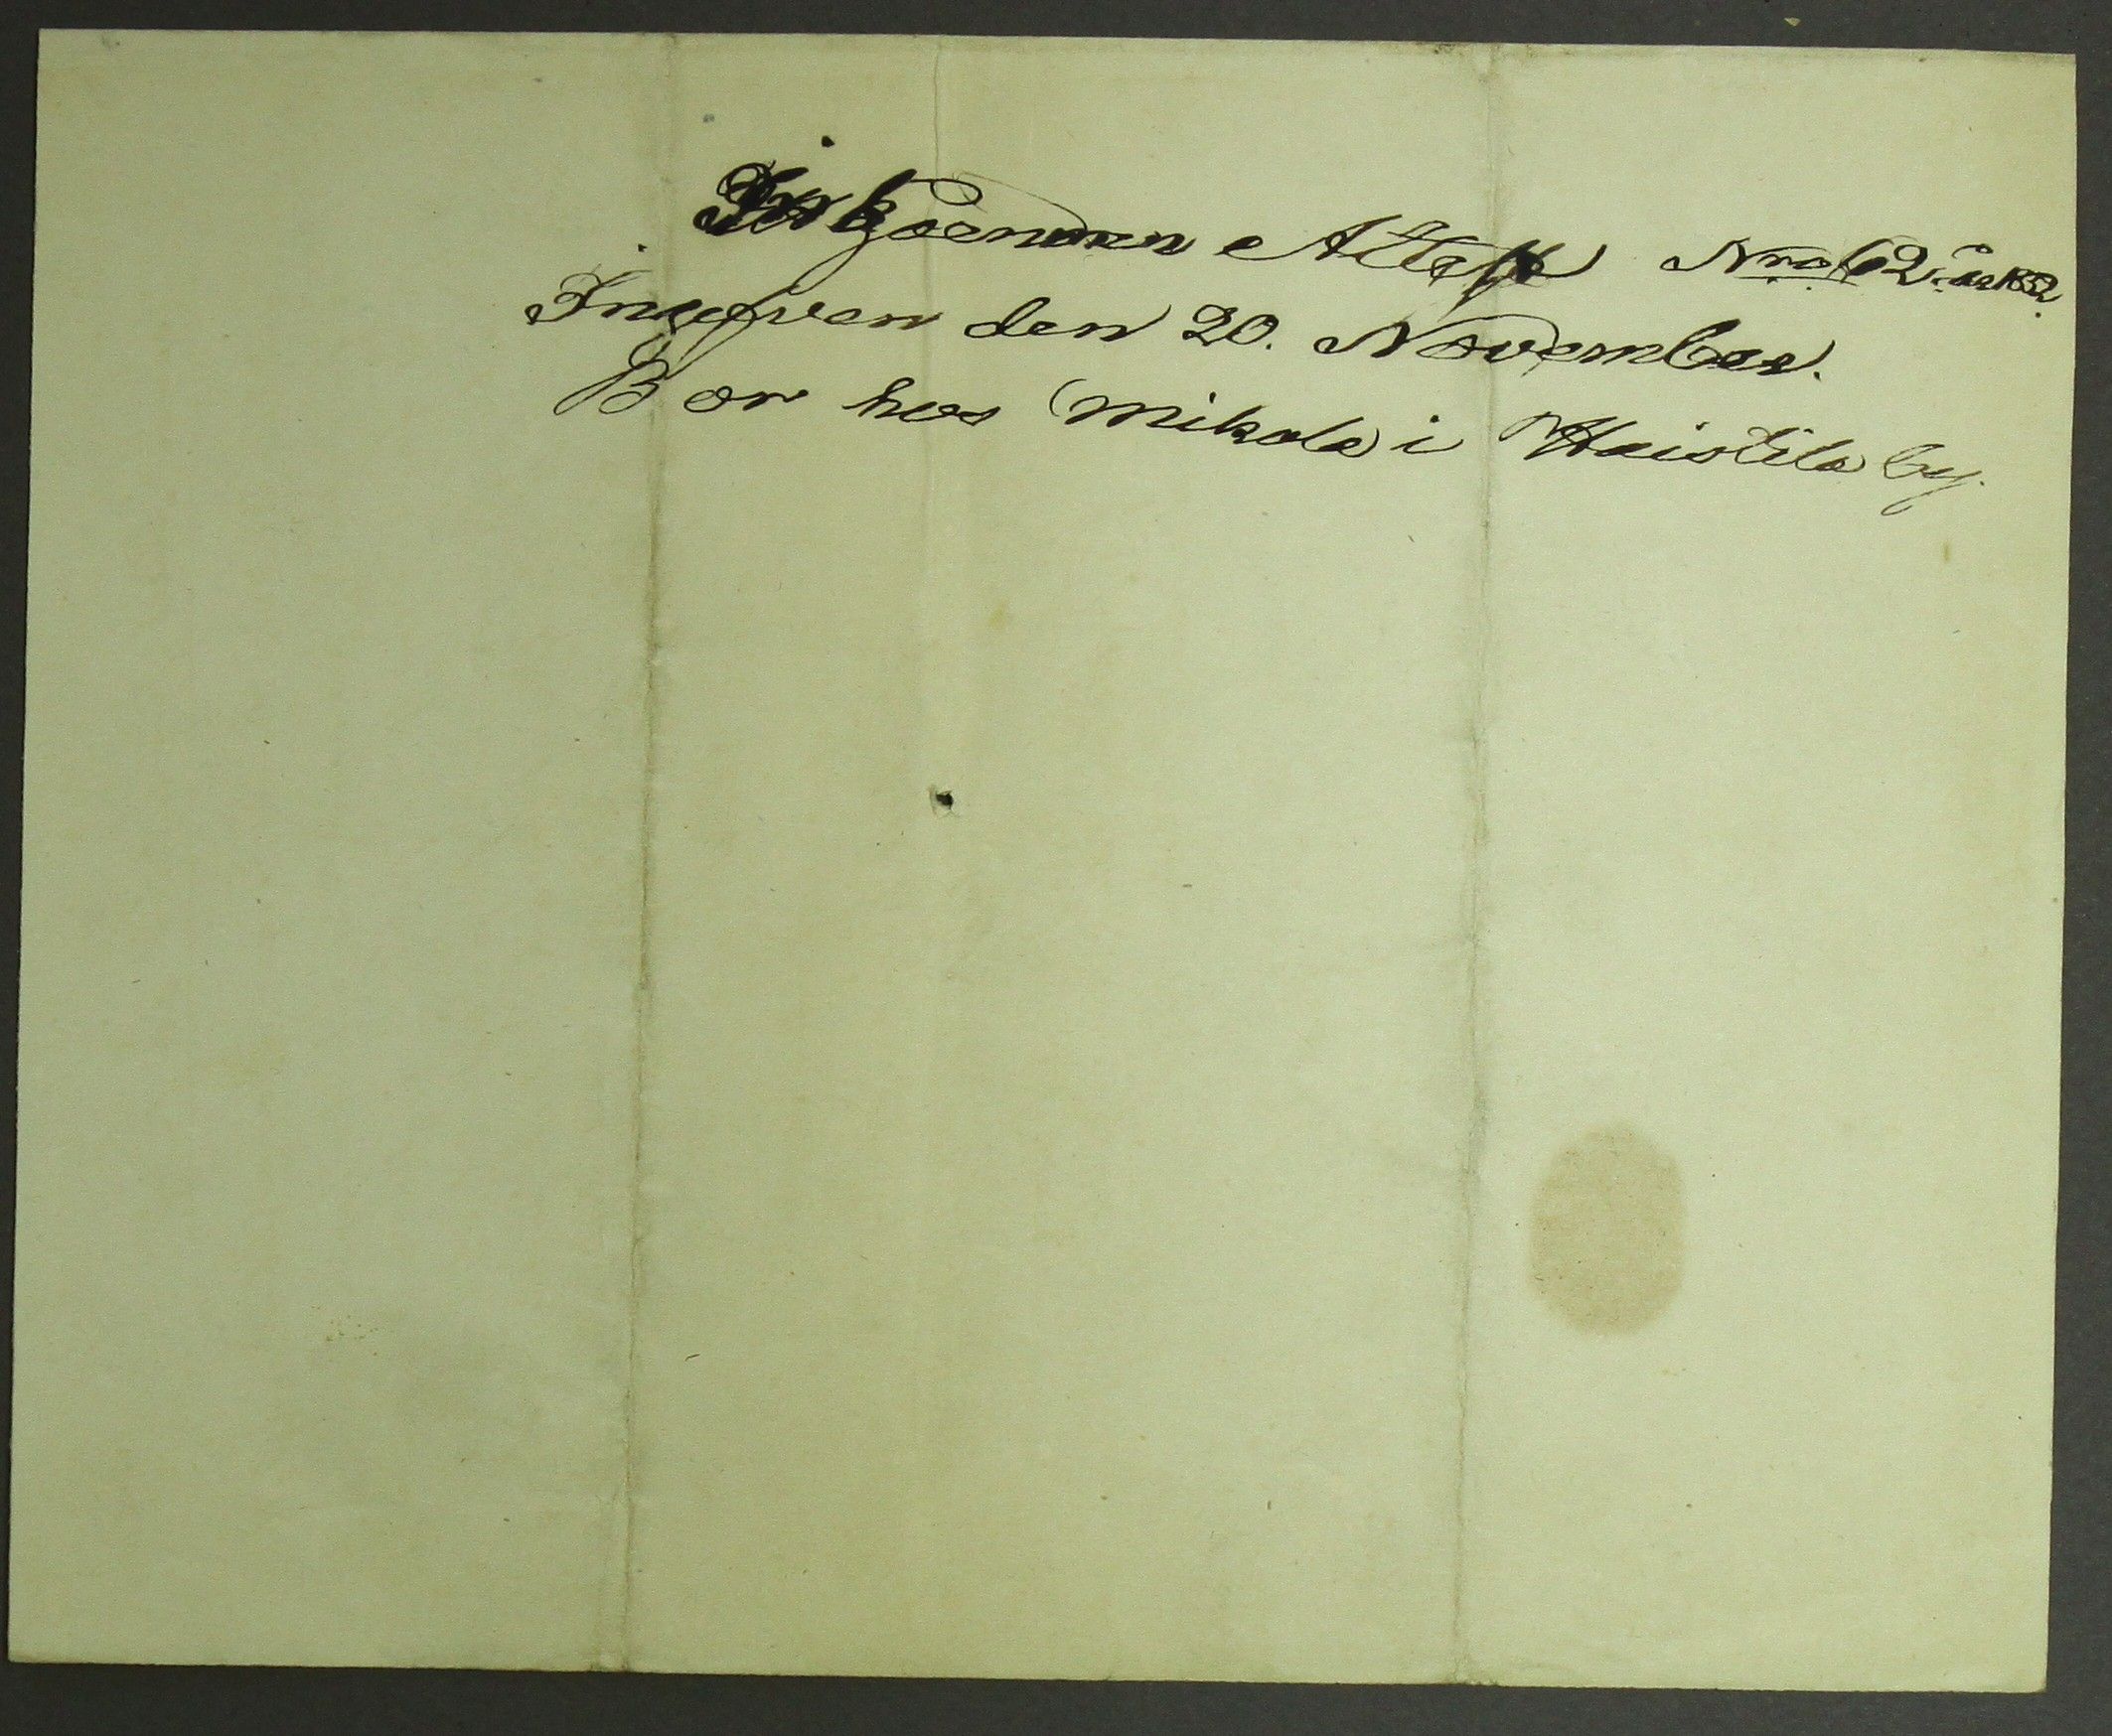 Inkommen Attest Nro 62. år 1852.
Ingifven den 20. November.
Bor hos Mikola i Haistila by.